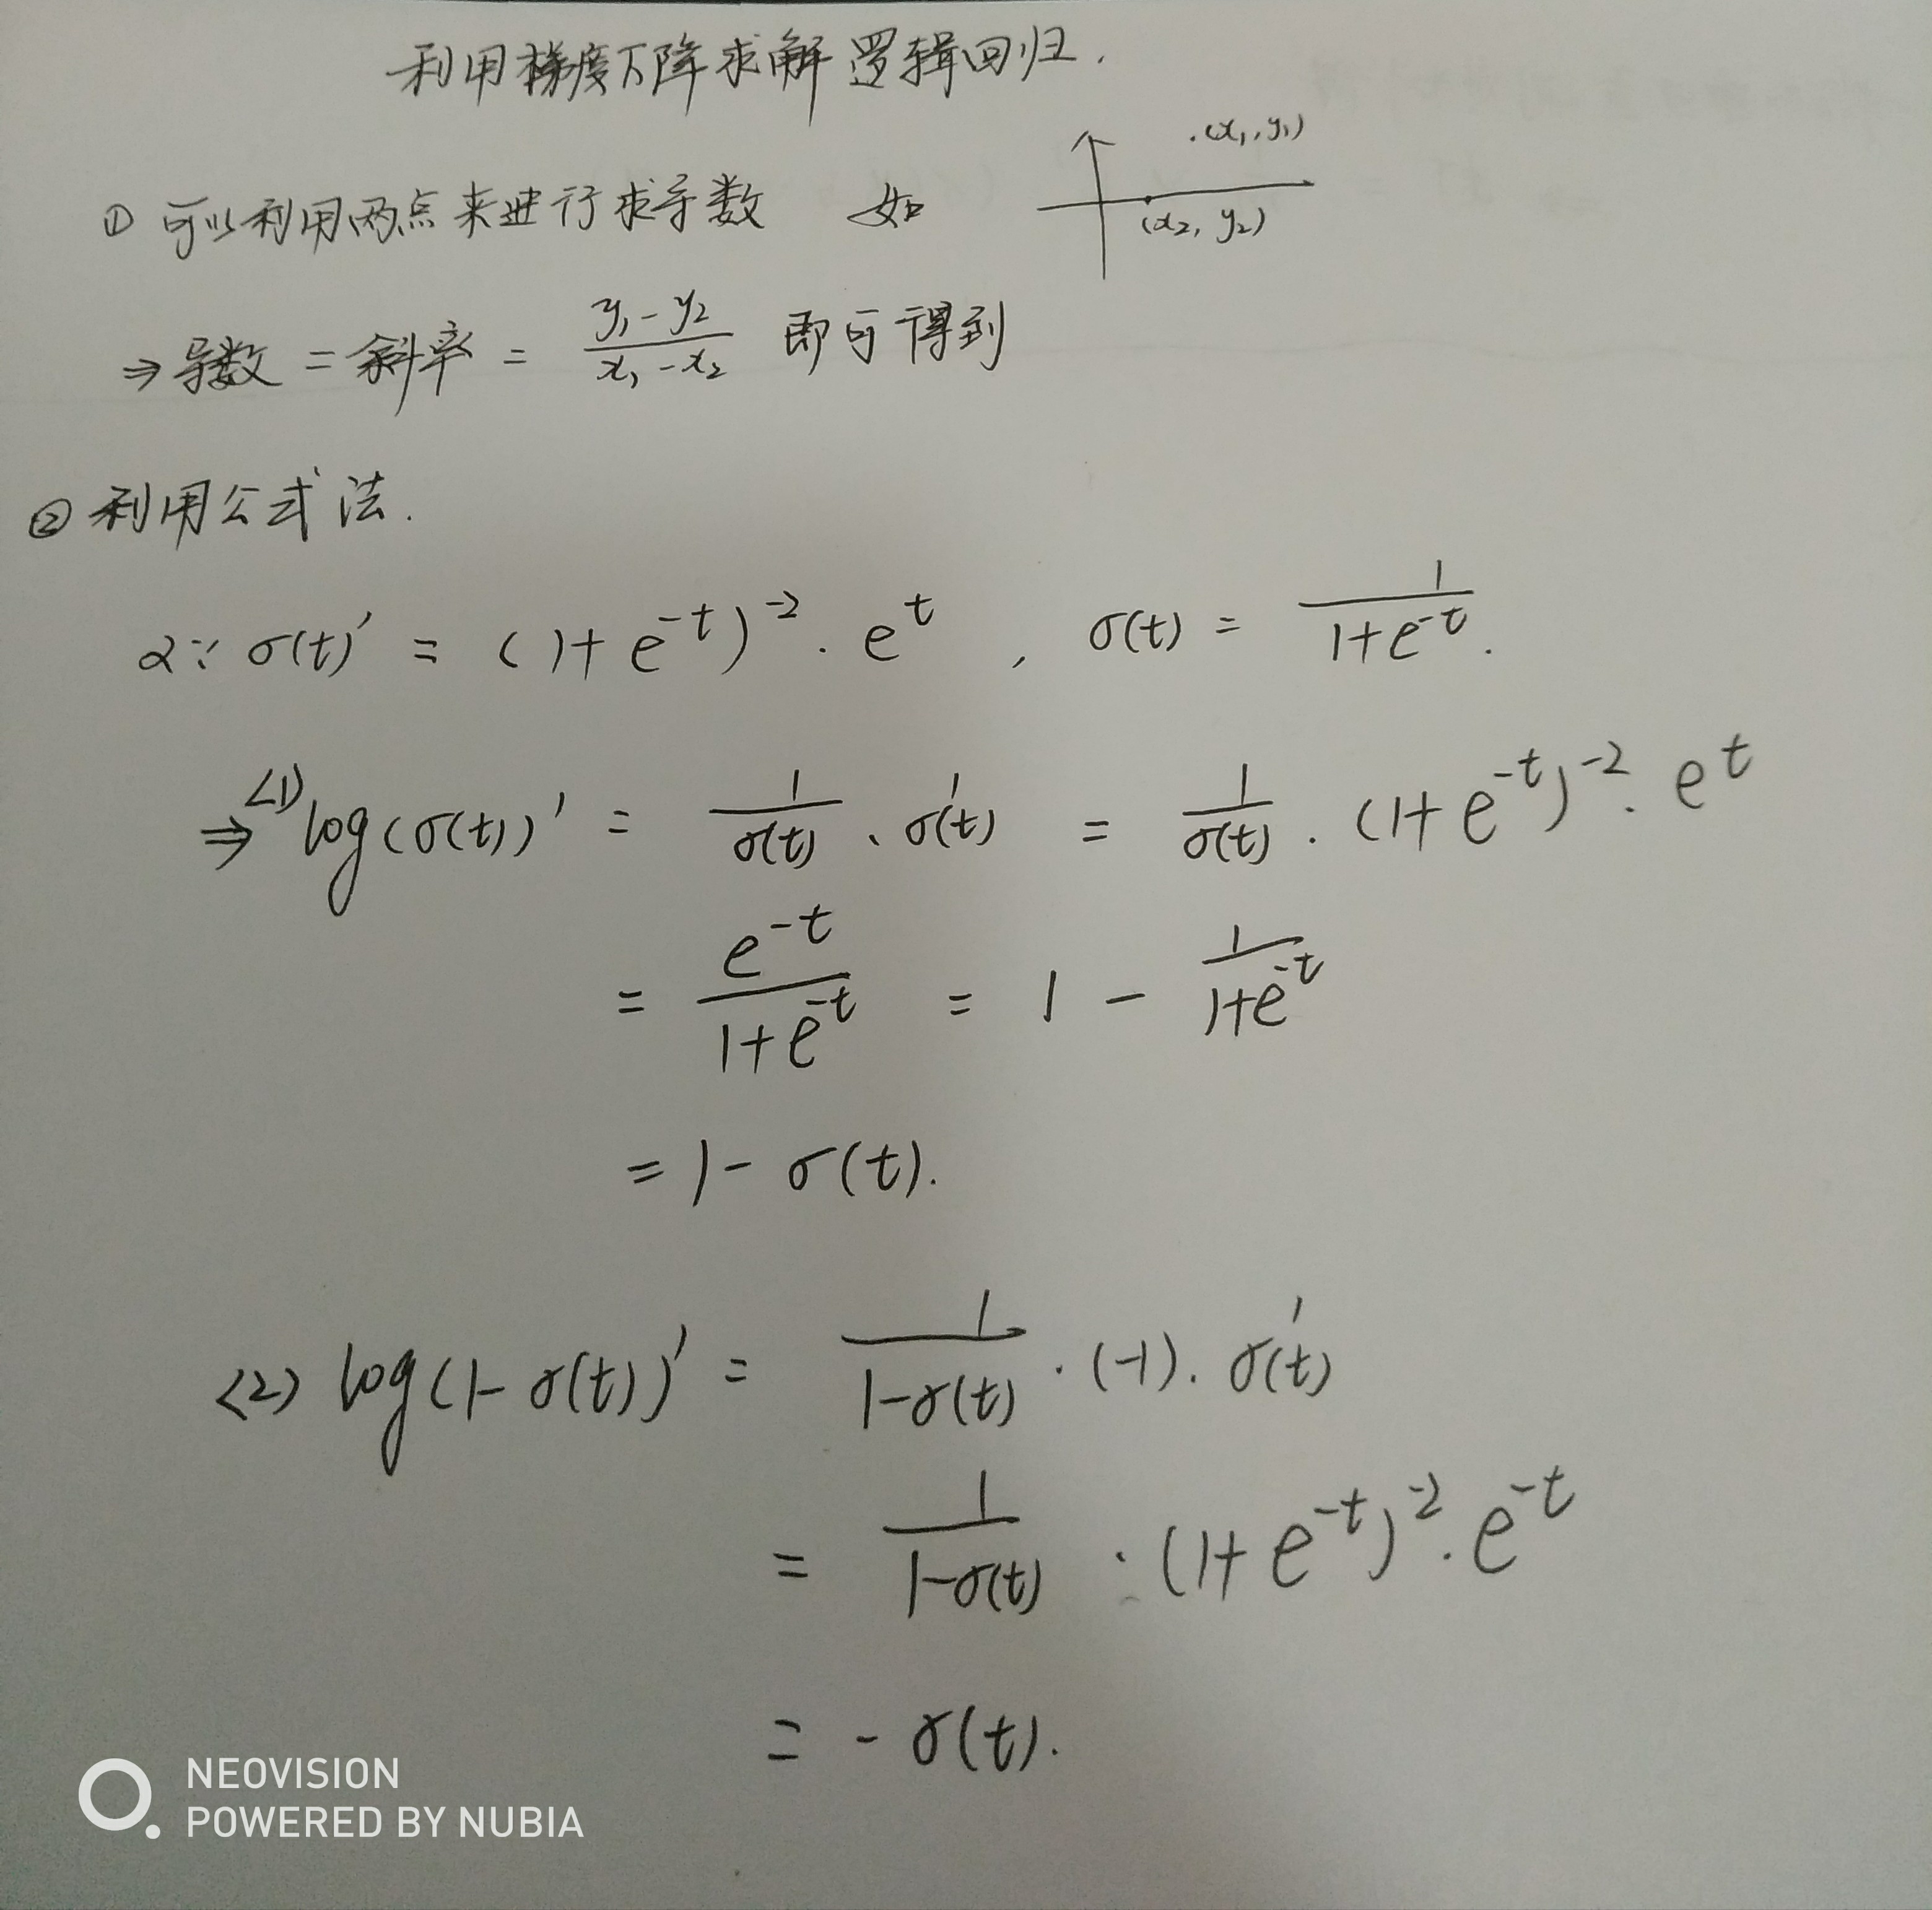 利用梯度下降求解逻辑回归.
① 可以利用两点来进行求导数 如
.(x₁,y₁)
(x₂, y₂)
⇒ 导数 = 斜率 = (y₁-y₂)/(x₁-x₂) 即可得到
② 利用公式法.
α∵ σ(t)' = (1+e^{-t})^{-2} · e^{t} , σ(t) = 1/(1+e^{-t}).
⇒ <1> log(σ(t))' = 1/σ(t) · σ'(t) = 1/σ(t) · (1+e^{-t})^{-2} · e^{t}
= e^{-t}/(1+e^{-t}) = 1 - 1/(1+e^{-t})
= 1 - σ(t).
<2> log(1-σ(t))' = 1/(1-σ(t)) · (-1) · σ'(t)
= 1/(1-σ(t)) · (1+e^{-t})^{-2} · e^{-t}
= - σ(t).
NEOVISION
POWERED BY NUBIA